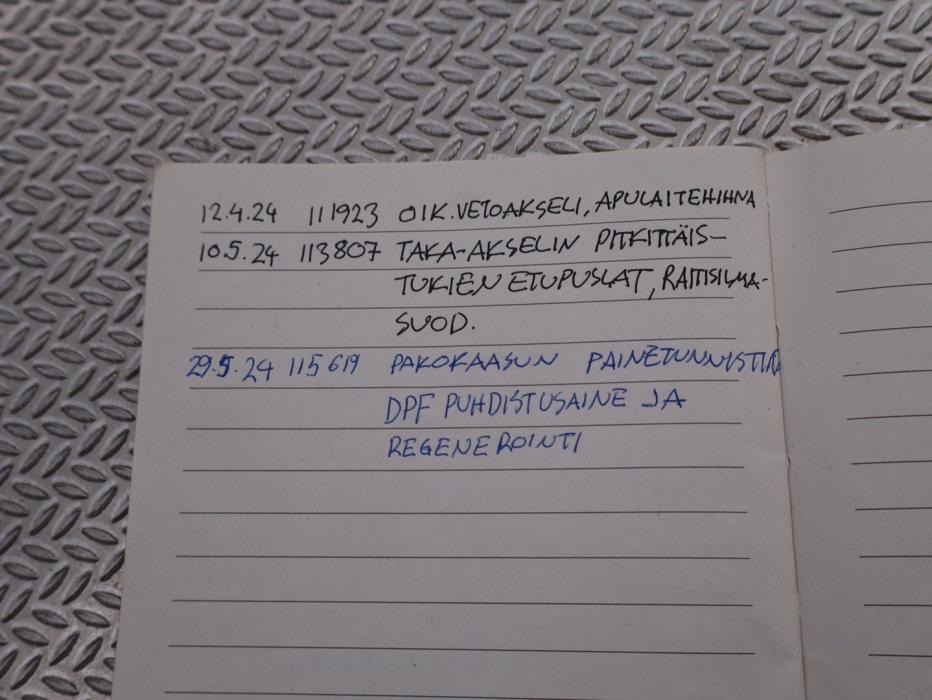 12.4.24 111923 OIK.VETOAKSELI, APULAITEHIHNA
10.5.24 113807 TAKA-AKSELIN PITKITTÄIS-
TUKIEN ETUPUSLAT, RAITISILMA-
SUOD.
29.5.24 115619 PAKOKAASUN PAINETUNNISTIN
DPF PUHDISTUSAINE JA
REGENEROINTI